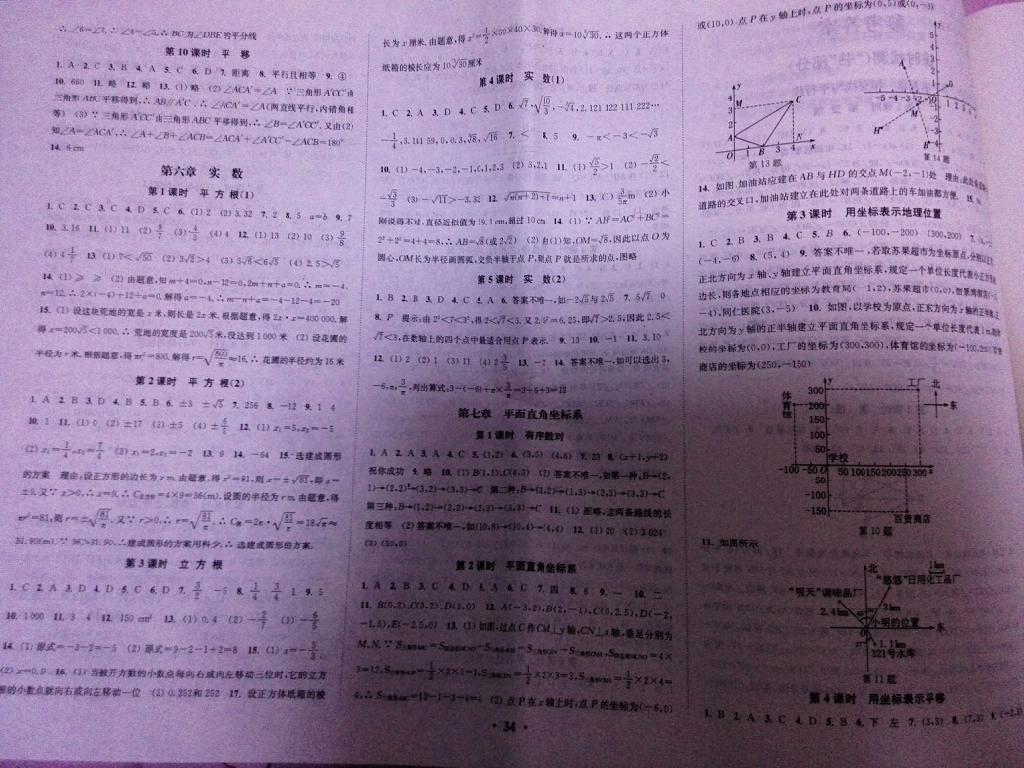 ∴∠6=∠7,∴∠4=∠5,∴BC为∠DBE的平分线
第10课时 平 移
1. A 2. C 3. B 4. A 5. C 6. D 7. 距离 8. 平行且相等 9. ④
10. 660 11. 略 12. 略 13. (1)略 (2)∠ACA'=∠A ∵三角形A'CC'由
三角形ABC平移得到,∴AB∥A'C ∴∠ACA'=∠A(两直线平行,内错角相
等) (3)∵三角形A'CC'由三角形ABC平移得到,∴∠B=∠A'CC'.又由(2)
知∠A=∠ACA',∴∠A+∠B+∠ACB=∠ACA'+∠A'CC'+∠ACB=180°
14. 6 cm
第六章 实 数
第1课时 平 方 根(1)
1. C 2. C 3. C 4. D 5. C 6. (1)2 (2)3.32 7. 2 8. 5 a=b 9. 7
10. 3.16 11. (1)11
12. (1)13 (2)10
13. (1)7<√50 (2)3√2>4 (3)5√6<6√5 (4)2.5>√5
14. (1)≥ ≥ (2)由题意,知m+4=0,n-12=0,2m+n+a=0,∴m=-4,
n=12,∴2×(-4)+12+a=0,解得a=-4,∴m-n+a=-4-12-4=-20
15. (1)设这块荒地的宽是x米,则长是2x米.根据题意,得2x·x=400000,解
得x=200√5<1000,∴荒地的宽度是200√5米,没达到1000米 (2)设花圃的
半径为r米.根据题意,得πr²=800,解得r=√(800/π)≈16,∴花圃的半径约为16米
第2课时 平 方 根(2)
1. A 2. B 3. D 4. B 5. B 6. ±3 ±√5 7. 256 8. -12 9. 1 4
10. 1 11. (1)0 (2)±17 (3)±5
12. (1)x₁=5,x₂=-5
(3)x₁=2,x₂=-2 13. 9 14. -64 15. 选建成圆形
的方案 理由:设正方形的边长为x m.由题意,得x²=81,则x=±√81,即x=
±9.又∵x>0,∴x=9,∴C正方形=4×9=36(m).设圆的半径为r m.由题意,得
πr²=81,则r=±√(81/π).又∵r>0,∴r=√(81/π),∴C圆=2π·√(81/π)=18√π≈
31.90(m).∵36>31.90,∴建成圆形的方案用料少,∴选建成圆形的方案.
第3课时 立 方 根
1. C 2. A 3. D 4. D 5. C 6. D 7. 3/2 -5 8. 1/4 3/4 1 9. 5
10. 1000 11. 3 4 12. 150 cm² 13. (1)0.4
14. (1)原式=-3-2=-5 (2)原式=9-2-1+2=8
16. (1)当被开方数的小数点每向右或向左移动三位时,它的立方
根的小数点就向右或向左移动一位 (2)0.252和252 17. 设正方体纸箱的棱
长为x厘米.由题意,得x³=1/2×50×40×30,解得x=10∛30,∴这两个正方体
纸箱的棱长应为10∛30厘米
第4课时 实 数(1)
1. C 2. A 3. D 4. C 5. D 6. √7,∛(10/3),-∛4,2.121 122 111 222…
-1/4,3.141 59,0,0.3,∛8,√16 7. < 8. 5 9. -π<-3<-√3
10. (1)-4,-3,-2,-1,0,1,2,3 (2)3,2,1
(3)-√11>-3.32 12. √(n(n+2)+1)=n+1
(2)小
刚说得不对,直径近似值为19.1 cm,超过10 cm 14. (1)∵AB²=AC²+BC²=
2²+2²=4+4=8,∴AB=√8(或2√2) (2)由(1)知,OM=√8,因此以点O为
圆心,OM长为半径画圆弧,交负半轴于点P,则点P就是所求的点,图略
第5课时 实 数(2)
1. B 2. B 3. C 4. C 5. A 6. 答案不唯一,如-2√5与2√5 7. 5√7 0
8. P 提示:由2²<7<3²,得2<√7<3.又2.5²=6.25,即√7>2.5,因此2.5<
√7<3,在数轴上的四个点中最适合用点P表示 9. 13 10. -1 11. 3,10
14. 答案不唯一,如可以选出3,
-6,π,3/π,列出算式:3-(-6)+π×3/π=3+6+3=12
第七章 平面直角坐标系
第1课时 有序数对
1. A 2. A 3. A 4. C 5. (1,2) 6. (3,5) (4,6) 7. 23 8. (x+1,y+2)
祝你成功 9. 略 10. (1)B(1,1),C(4,3) (2)答案不唯一,如第一种:B→(2,
1)→(2,2)→(3,2)→(3,3)→C 第二种:B→(1,2)→(1,3)→(2,3)→(3,3)→C
第三种:B→(1,2)→(2,2)→(2,3)→(3,3)→C 11. (1)图略,这两条路线的长
度相等 (2)答案不唯一,如(10,8)→(10,4)→(4,4) 12. (1)20 (2)3 024
(3)(10,0)
第2课时 平面直角坐标系
1. A 2. B 3. C 4. D 5. A 6. C 7. 四 8. 6 9. 一 10. 二
11. B(0,2),C(3,2),D(3,0) 12. A(-3,2),B(2,-1),C(0,2.5),D(-2,
-1.5),E(-2.5,0) 13. (1)如图,过点C作CM⊥y轴,CN⊥x轴,垂足分别为
M,N.
(2)点P在x轴上时,点P的坐标为(-6,0)
或(10,0).点P在y轴上时,点P的坐标为(0,5)或(0,-3)
第13题
第14题
14. 如图,加油站应建在AB与HD的交点M(-2,-1)处
道路的交叉口,加油站建立在此处对两条道路上的车加油都方便.
第3课时 用坐标表示地理位置
1. C 2. B 3. B 4. C 5. B 6. (-100,-200) (300,200)
(-4,-6) 8. (5,4) 9. 答案不唯一,若取苏果超市为坐标原点,
正北方向为x轴、y轴建立平面直角坐标系,规定一个单位长度代表小正方形
边长,则各地点相应的坐标为教育局(-1,2),苏果超市(0,0),
-4),同仁医院(3,-5) 10. 如图,以学校为原点,正东方向为x轴的正半轴,正
北方向为y轴的正半轴建立平面直角坐标系,规定一个单位长度代表1 m,则学
校的坐标为(0,0),工厂的坐标为(300,300),体育馆的坐标为(-100,200),百货
商店的坐标为(250,-150)
y
工厂
北
东
体育馆
300
200
150
100
50
学校
-100 -50 O 50 100 150 200 250 300 x
-50
-100
-150
百货商店
第10题
11. 如图所示
北
1 km
“悠悠”日用化工厂
“明天”调味品厂
3 km
2.4 km
小明的位置
东
1.1 km
321号水库
第11题
第4课时 用坐标表示平移
1. B 2. A 3. C 4. D 5. B 6. 下 左 7. (3,3) 8. (7,3)
· 34 ·